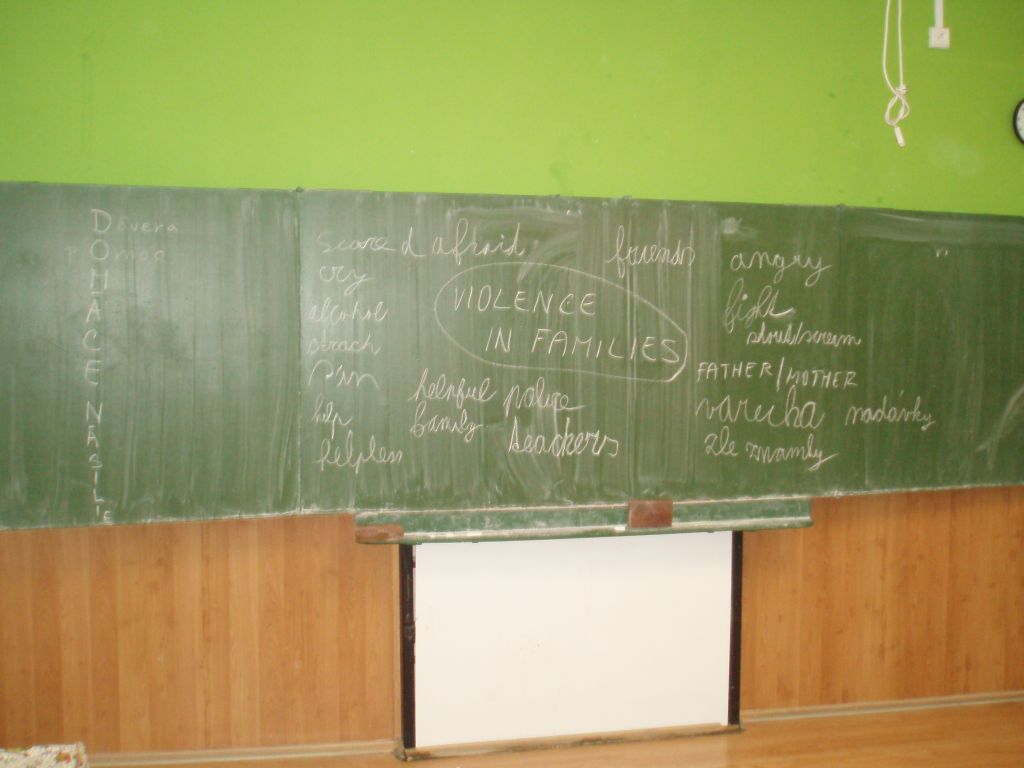 Dôvera
Pomoc
DOMÁCE NÁSILIE
scared afraid
cry
alcohol
pain
help
helpless
VIOLENCE
IN FAMILIES
helpful police
family
teachers
friends
angry
fight
shout/scream
FATHER/MOTHER
varecha nadávky
zle známky